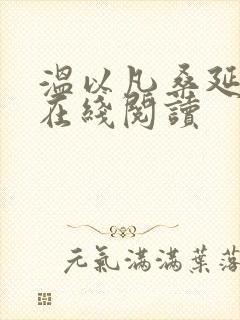 温以凡桑延
在綫閱讀
元氣滿滿葉落